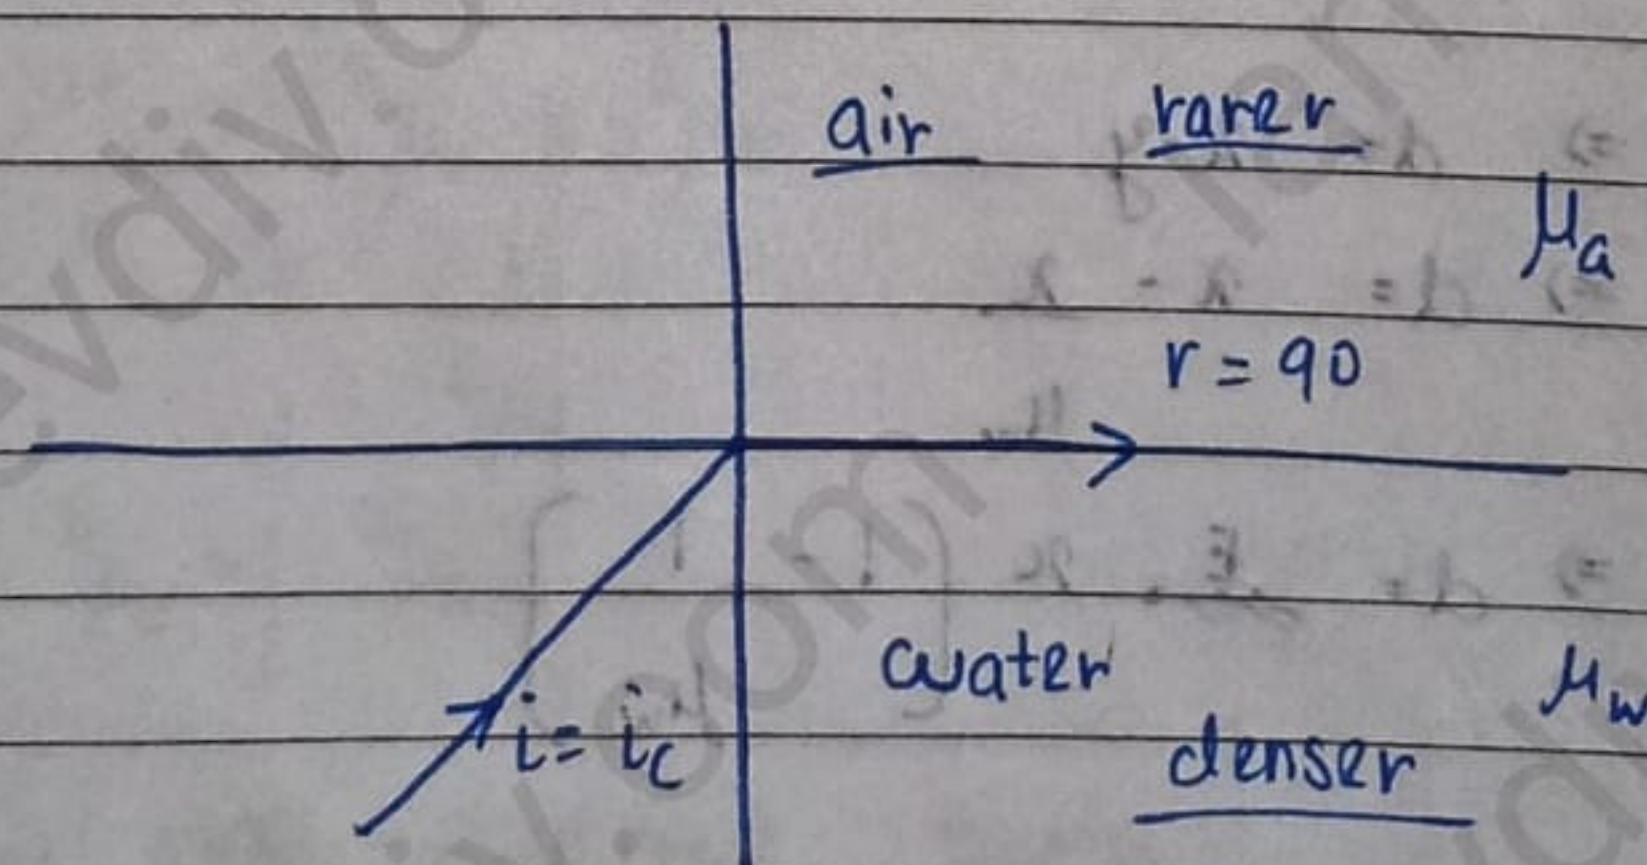 air rarer
μa
r = 90
water μw
i = ic
denser